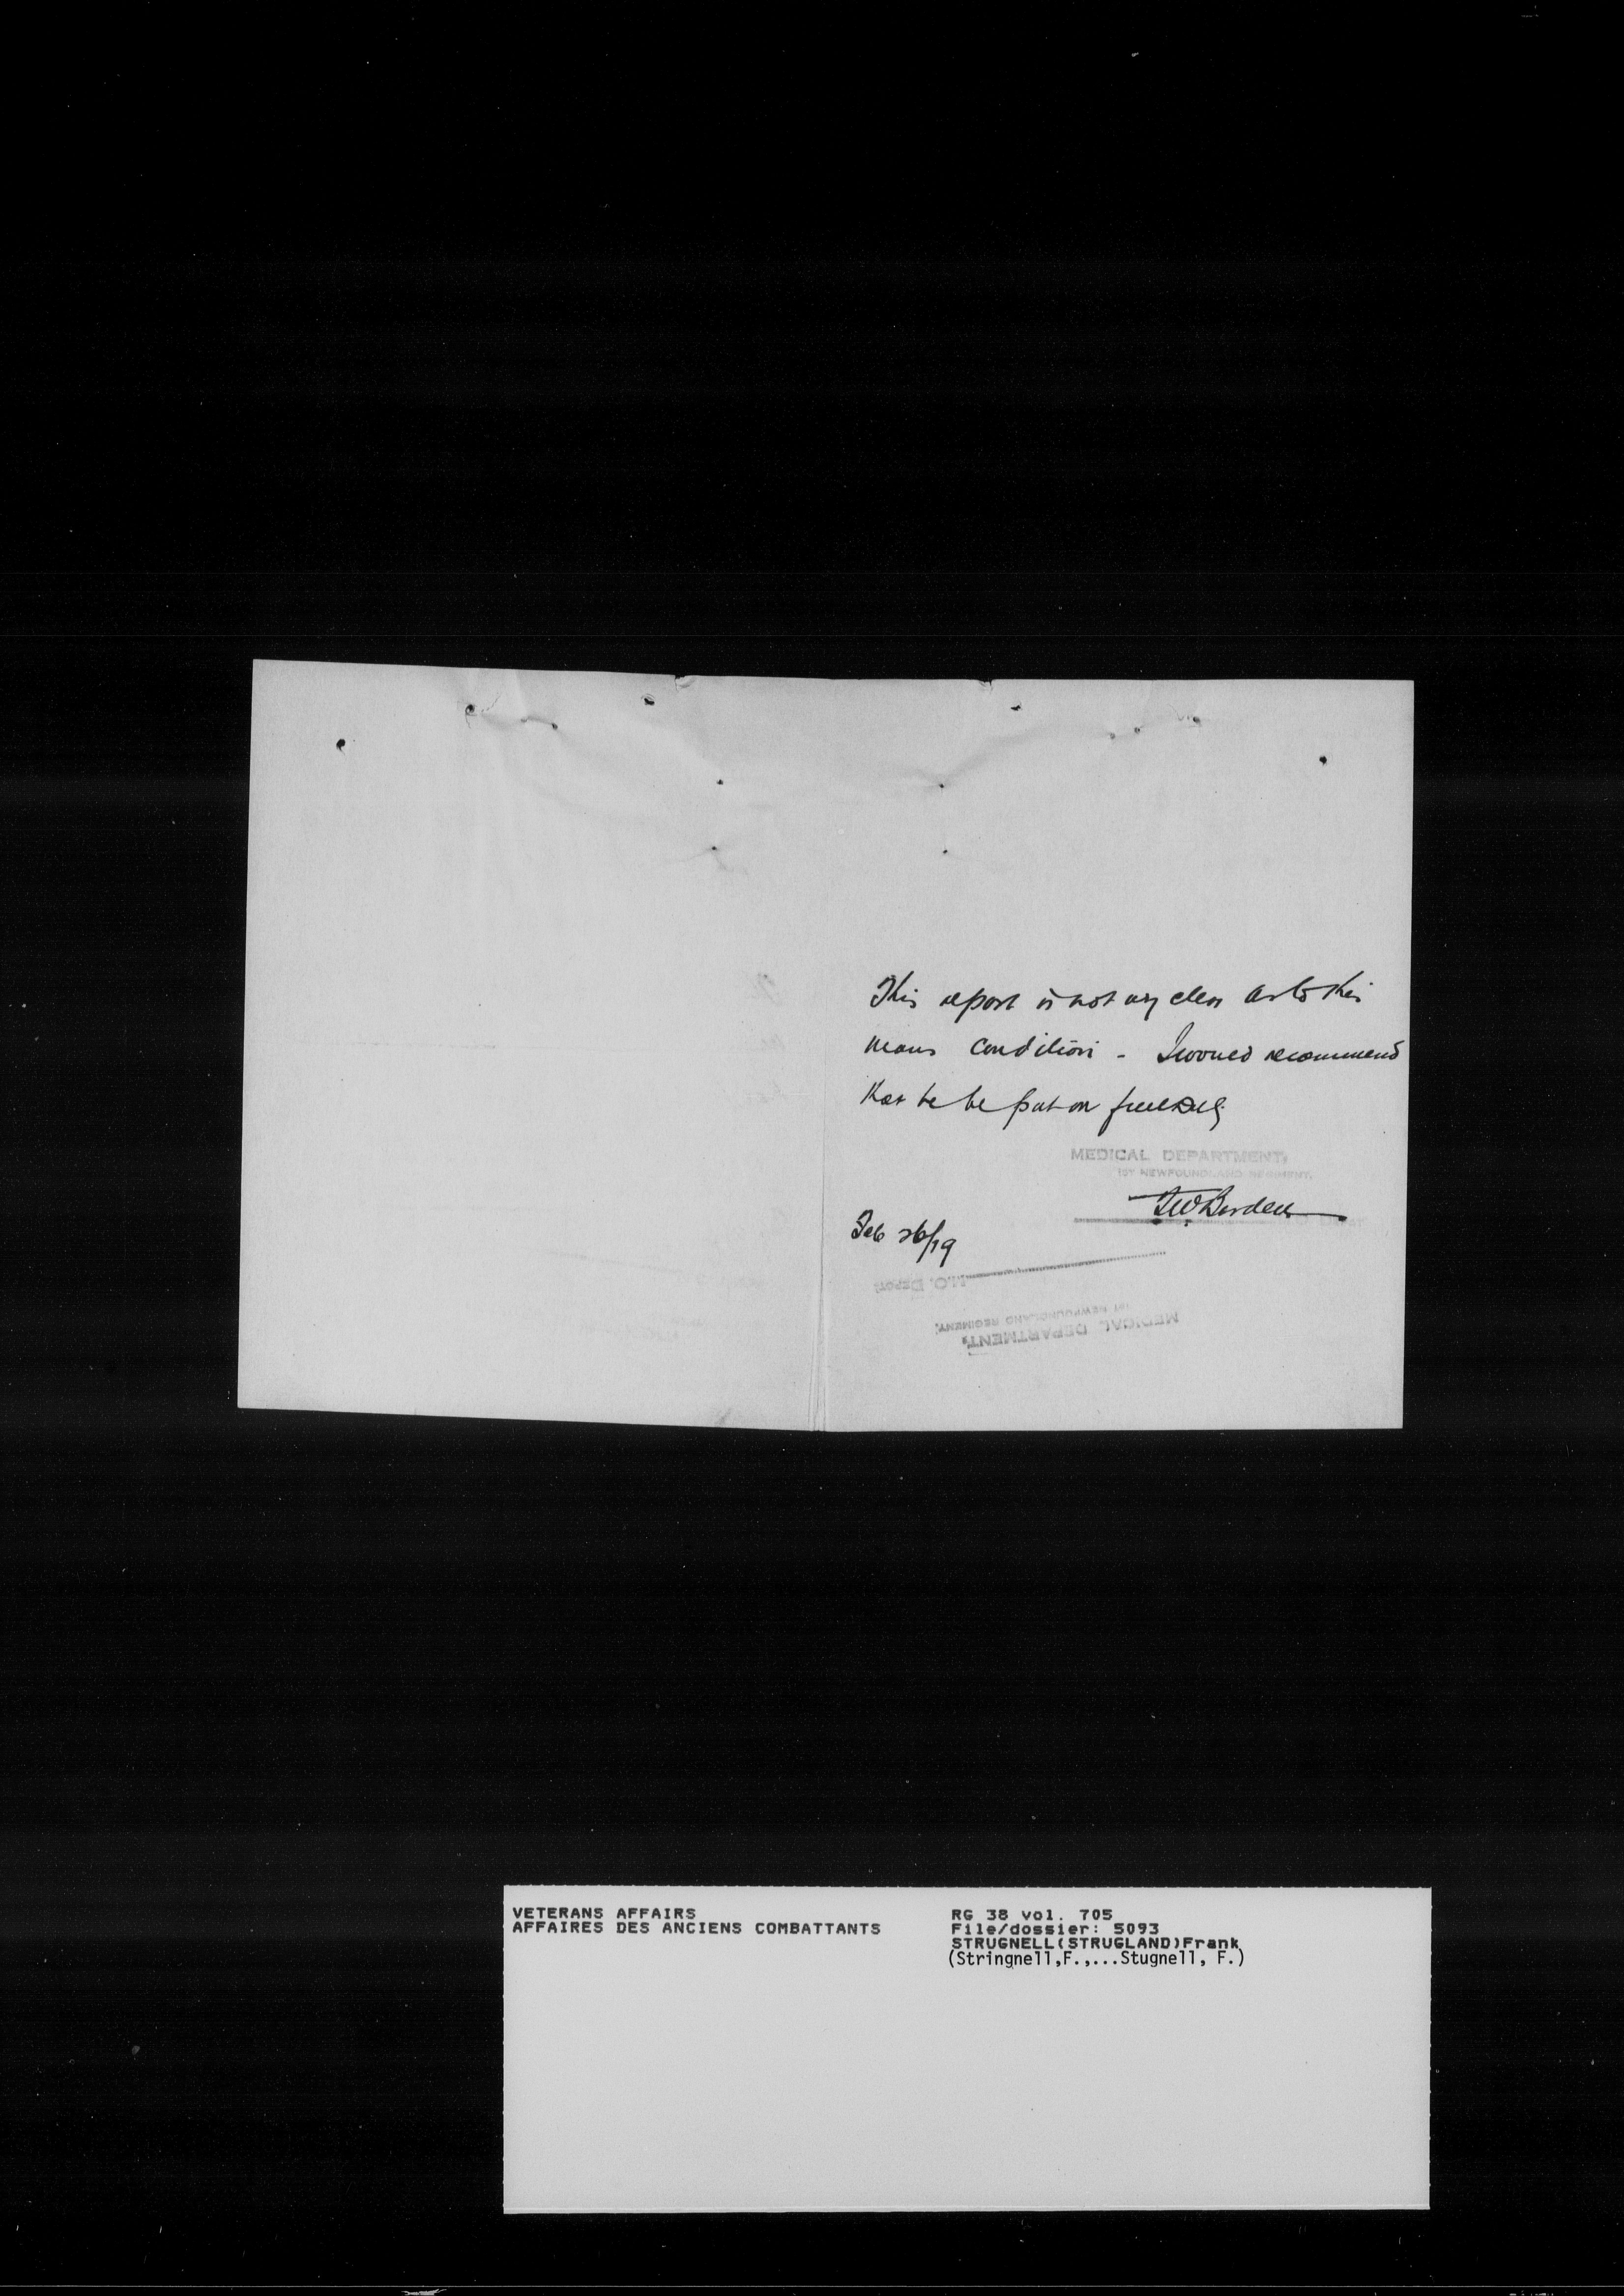 This report is not very clear as to this
mans condition - I would recommend
that he be put on full duty.
MEDICAL DEPARTMENT,
1ST NEWFOUNDLAND REGIMENT.
Feb 26/19
M.O. DEPOT.
MEDICAL DEPARTMENT,
1ST NEWFOUNDLAND REGIMENT.
VETERANS AFFAIRS
AFFAIRES DES ANCIENS COMBATTANTS
RG 38 vol. 705
File/dossier: 5093
STRUGNELL(STRUGLAND)Frank
(Stringnell,F.,...Stugnell, F.)